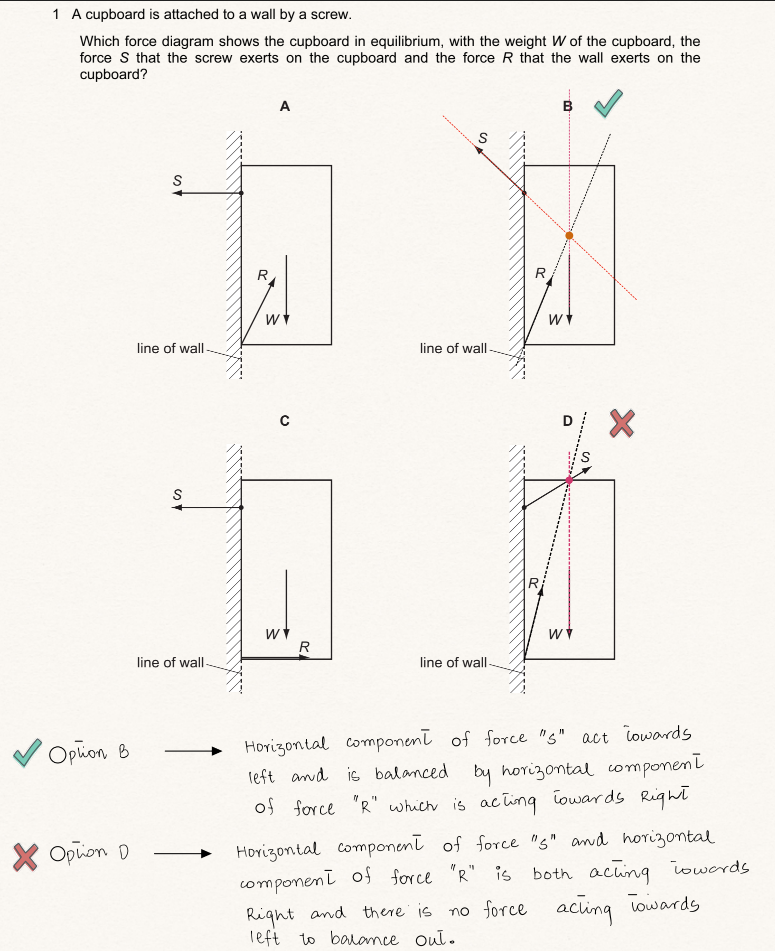 1 A cupboard is attached to a wall by a screw.
Which force diagram shows the cupboard in equilibrium, with the weight W of the cupboard, the
force S that the screw exerts on the cupboard and the force R that the wall exerts on the
cupboard?
A
B
S
S
R
R
W
W
line of wall
line of wall
C
D
S
S
R
W
W
R
line of wall
line of wall
Option B
Horizontal component of force "S" act towards
left and is balanced by horizontal component
of force "R" which is acting towards Right
Option D
Horizontal component of force "S" and horizontal
component of force "R" is both acting towards
Right and there is no force acting towards
left to balance out.